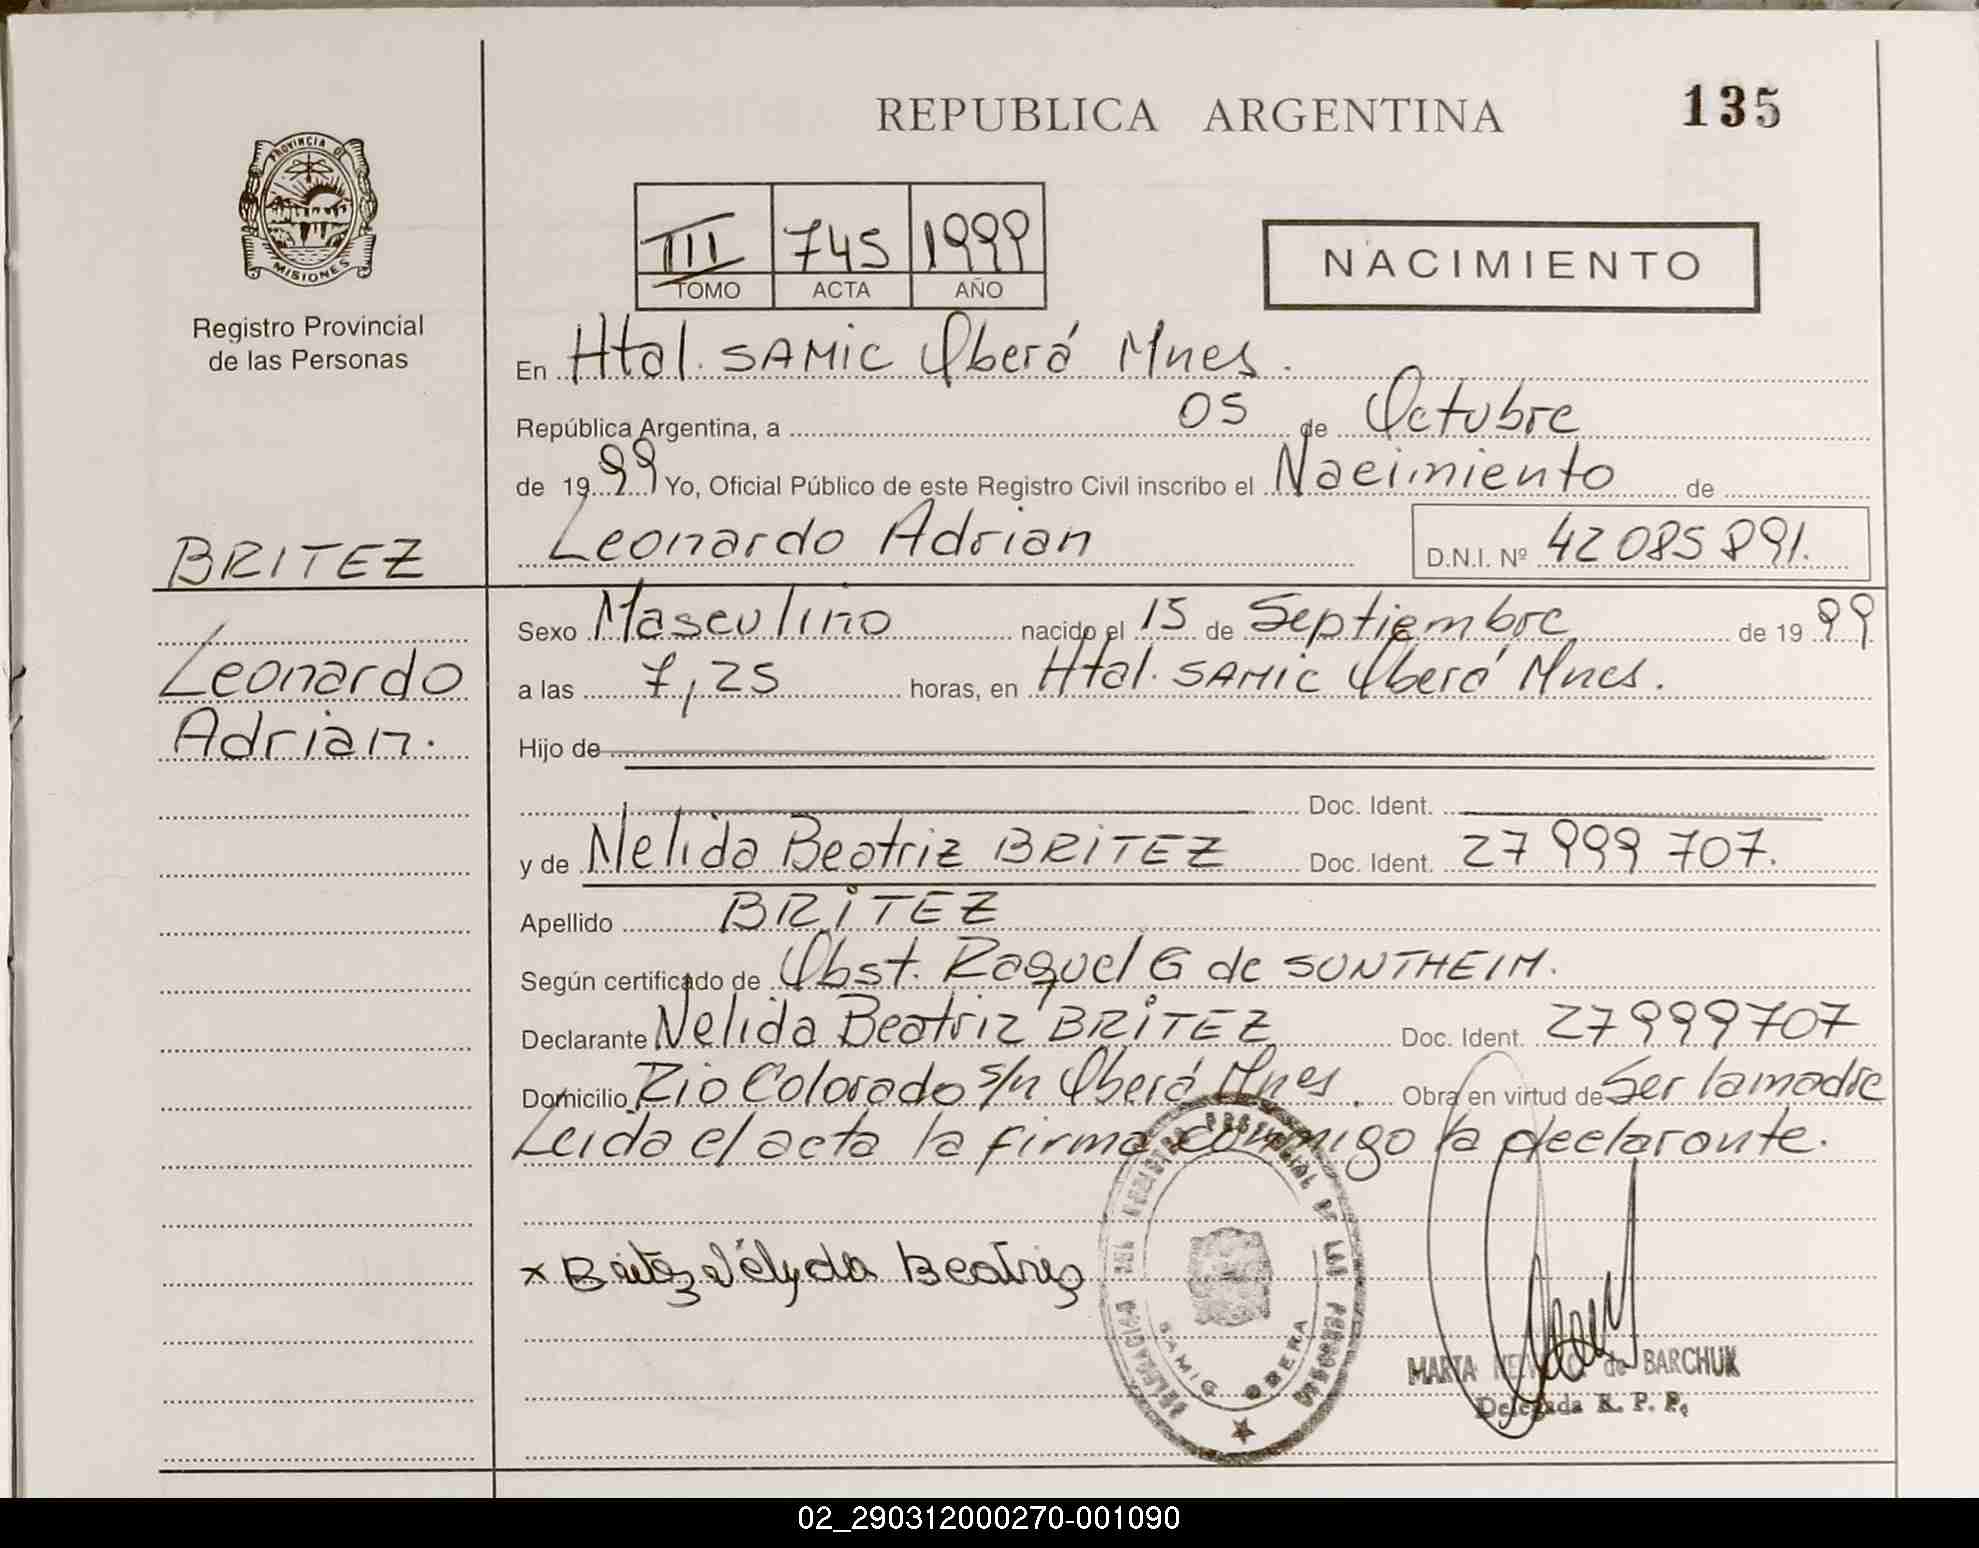 REPUBLICA ARGENTINA
135
PROVINCIA DE
MISIONES
Registro Provincial
de las Personas
III 745 1999
TOMO ACTA AÑO
NACIMIENTO
En Htal. SAMIC Oberá Mnes.
República Argentina, a 05 de Octubre
de 1999 Yo, Oficial Público de este Registro Civil inscribo el Nacimiento de
Leonardo Adrian D.N.I. Nº 42 085 891.
BRITEZ
Leonardo
Adrian.
Sexo Masculino nacido el 15 de Septiembre de 1999
a las 7,25 horas, en Htal. SAMIC Oberá Mnes.
Hijo de
Doc. Ident.
y de Nelida Beatriz BRITEZ Doc. Ident. 27 999 707.
Apellido BRITEZ
Según certificado de Obst. Raquel G de SUNTHEIM.
Declarante Nelida Beatriz BRITEZ Doc. Ident. 27999707
Domicilio Rio Colorado s/n Oberá Mnes. Obra en virtud de Ser la madre
Leida el acta la firma conmigo la declarante.
x Britez Nélyda Beatriz
DELEGACION DEL REGISTRO PROVINCIAL DE LAS PERSONAS
SAMIC OBERA
MARTA de BARCHUK
Delegada R. P. P.
02_290312000270-001090